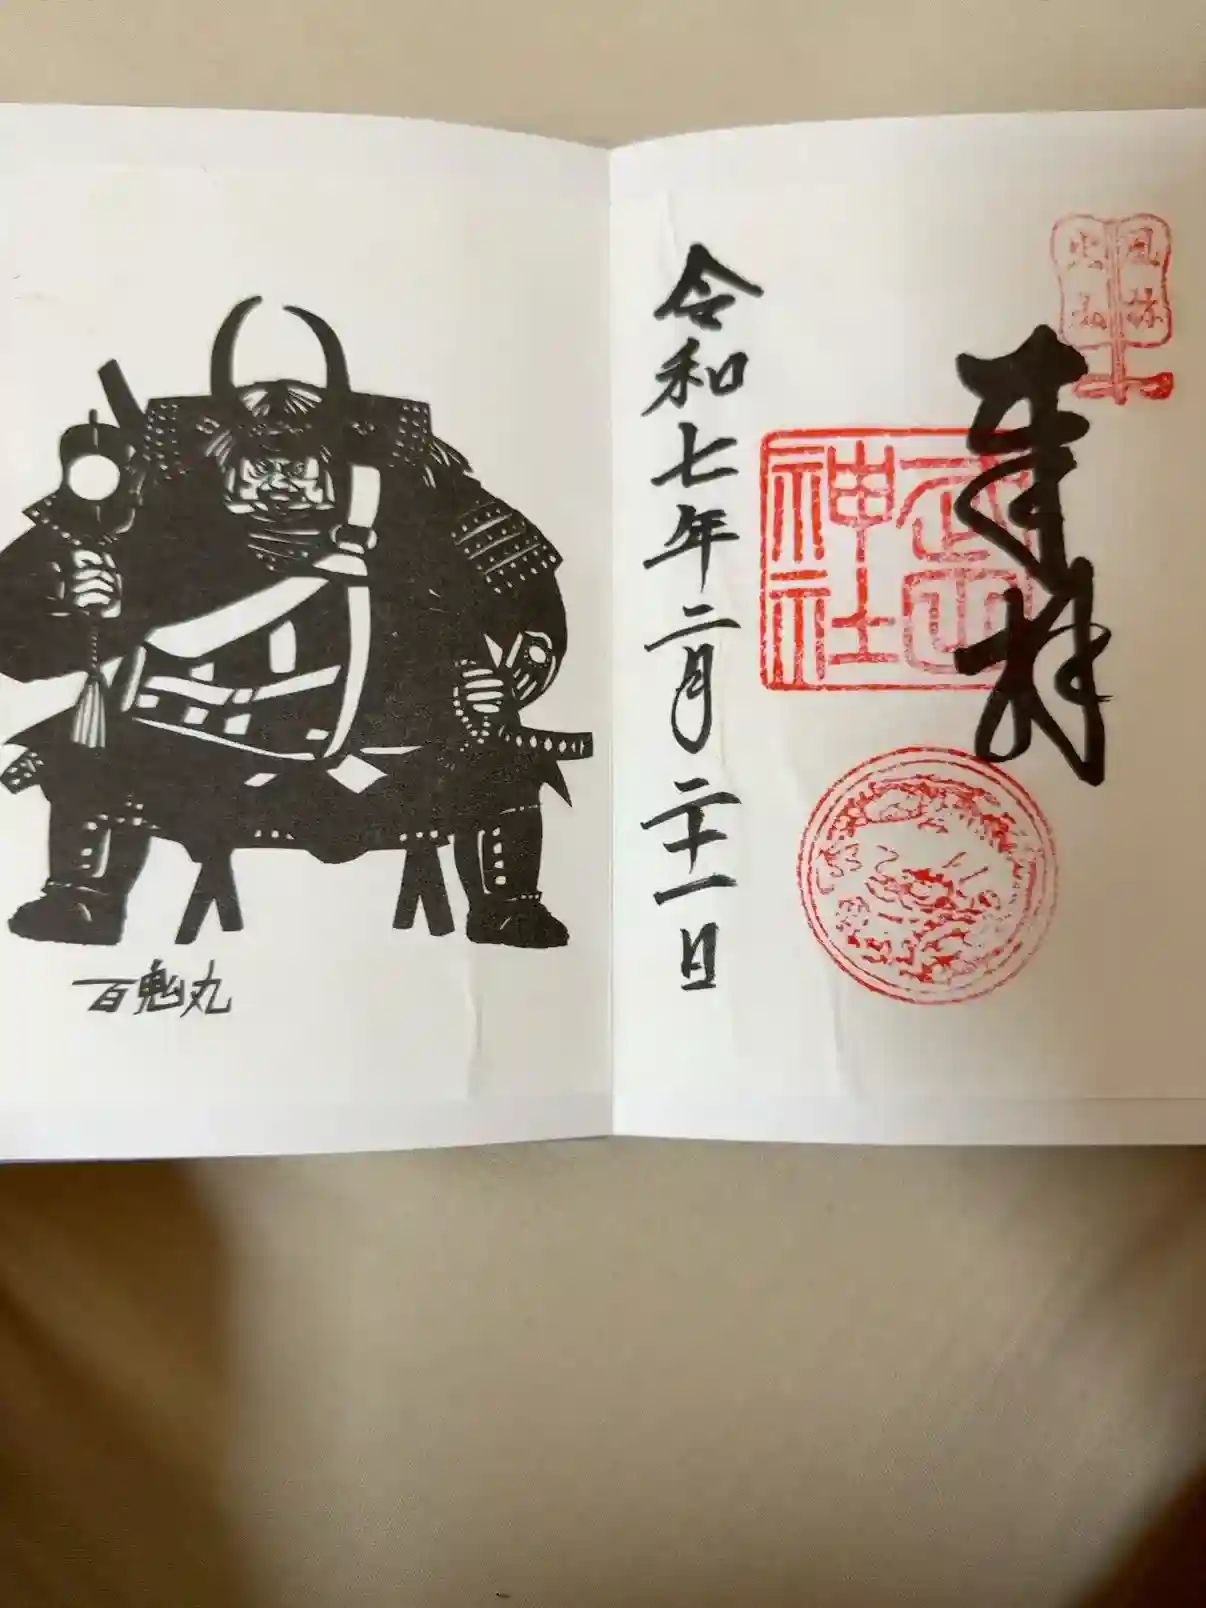 風林
火山
奉拝
武田
神社
令和七年二月二十一日
百鬼丸